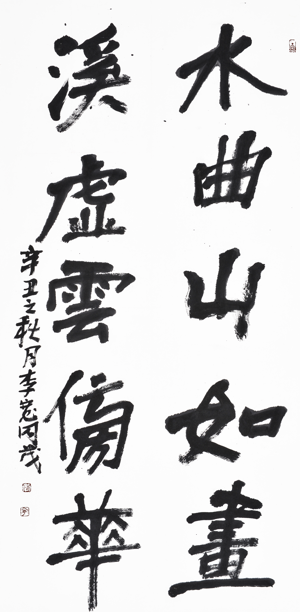 水曲山如畫
溪虛雲傍華
辛丑之秋月李